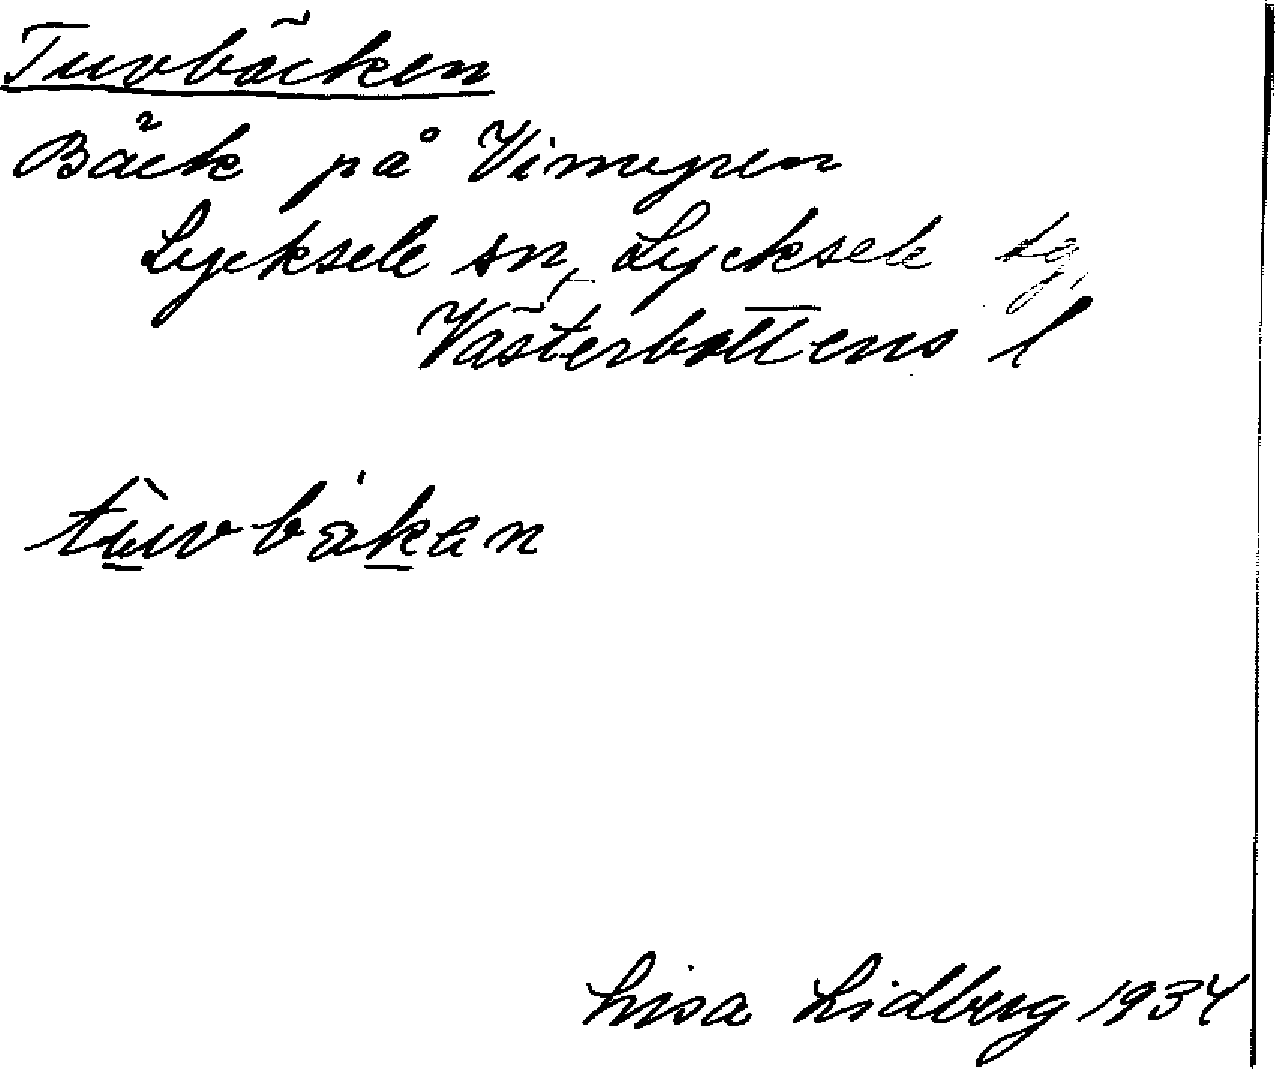 Tuvbäcken
Bäck på Vimyren
Lycksele sn, Lycksele tg,
Västerbottens l
tûvbáken
Lisa Lidberg 1934